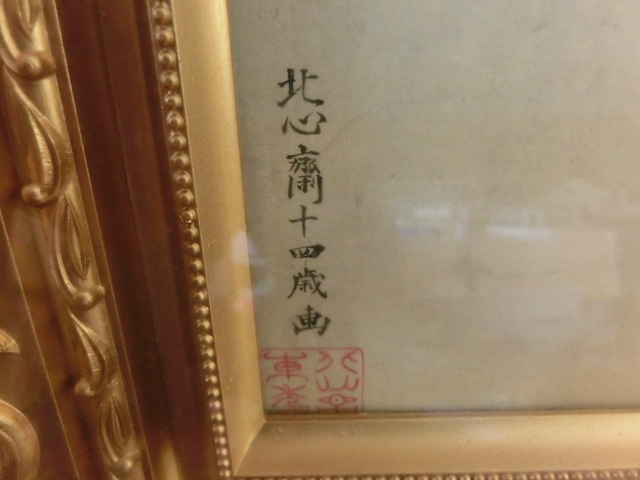 北心齋十四歳画